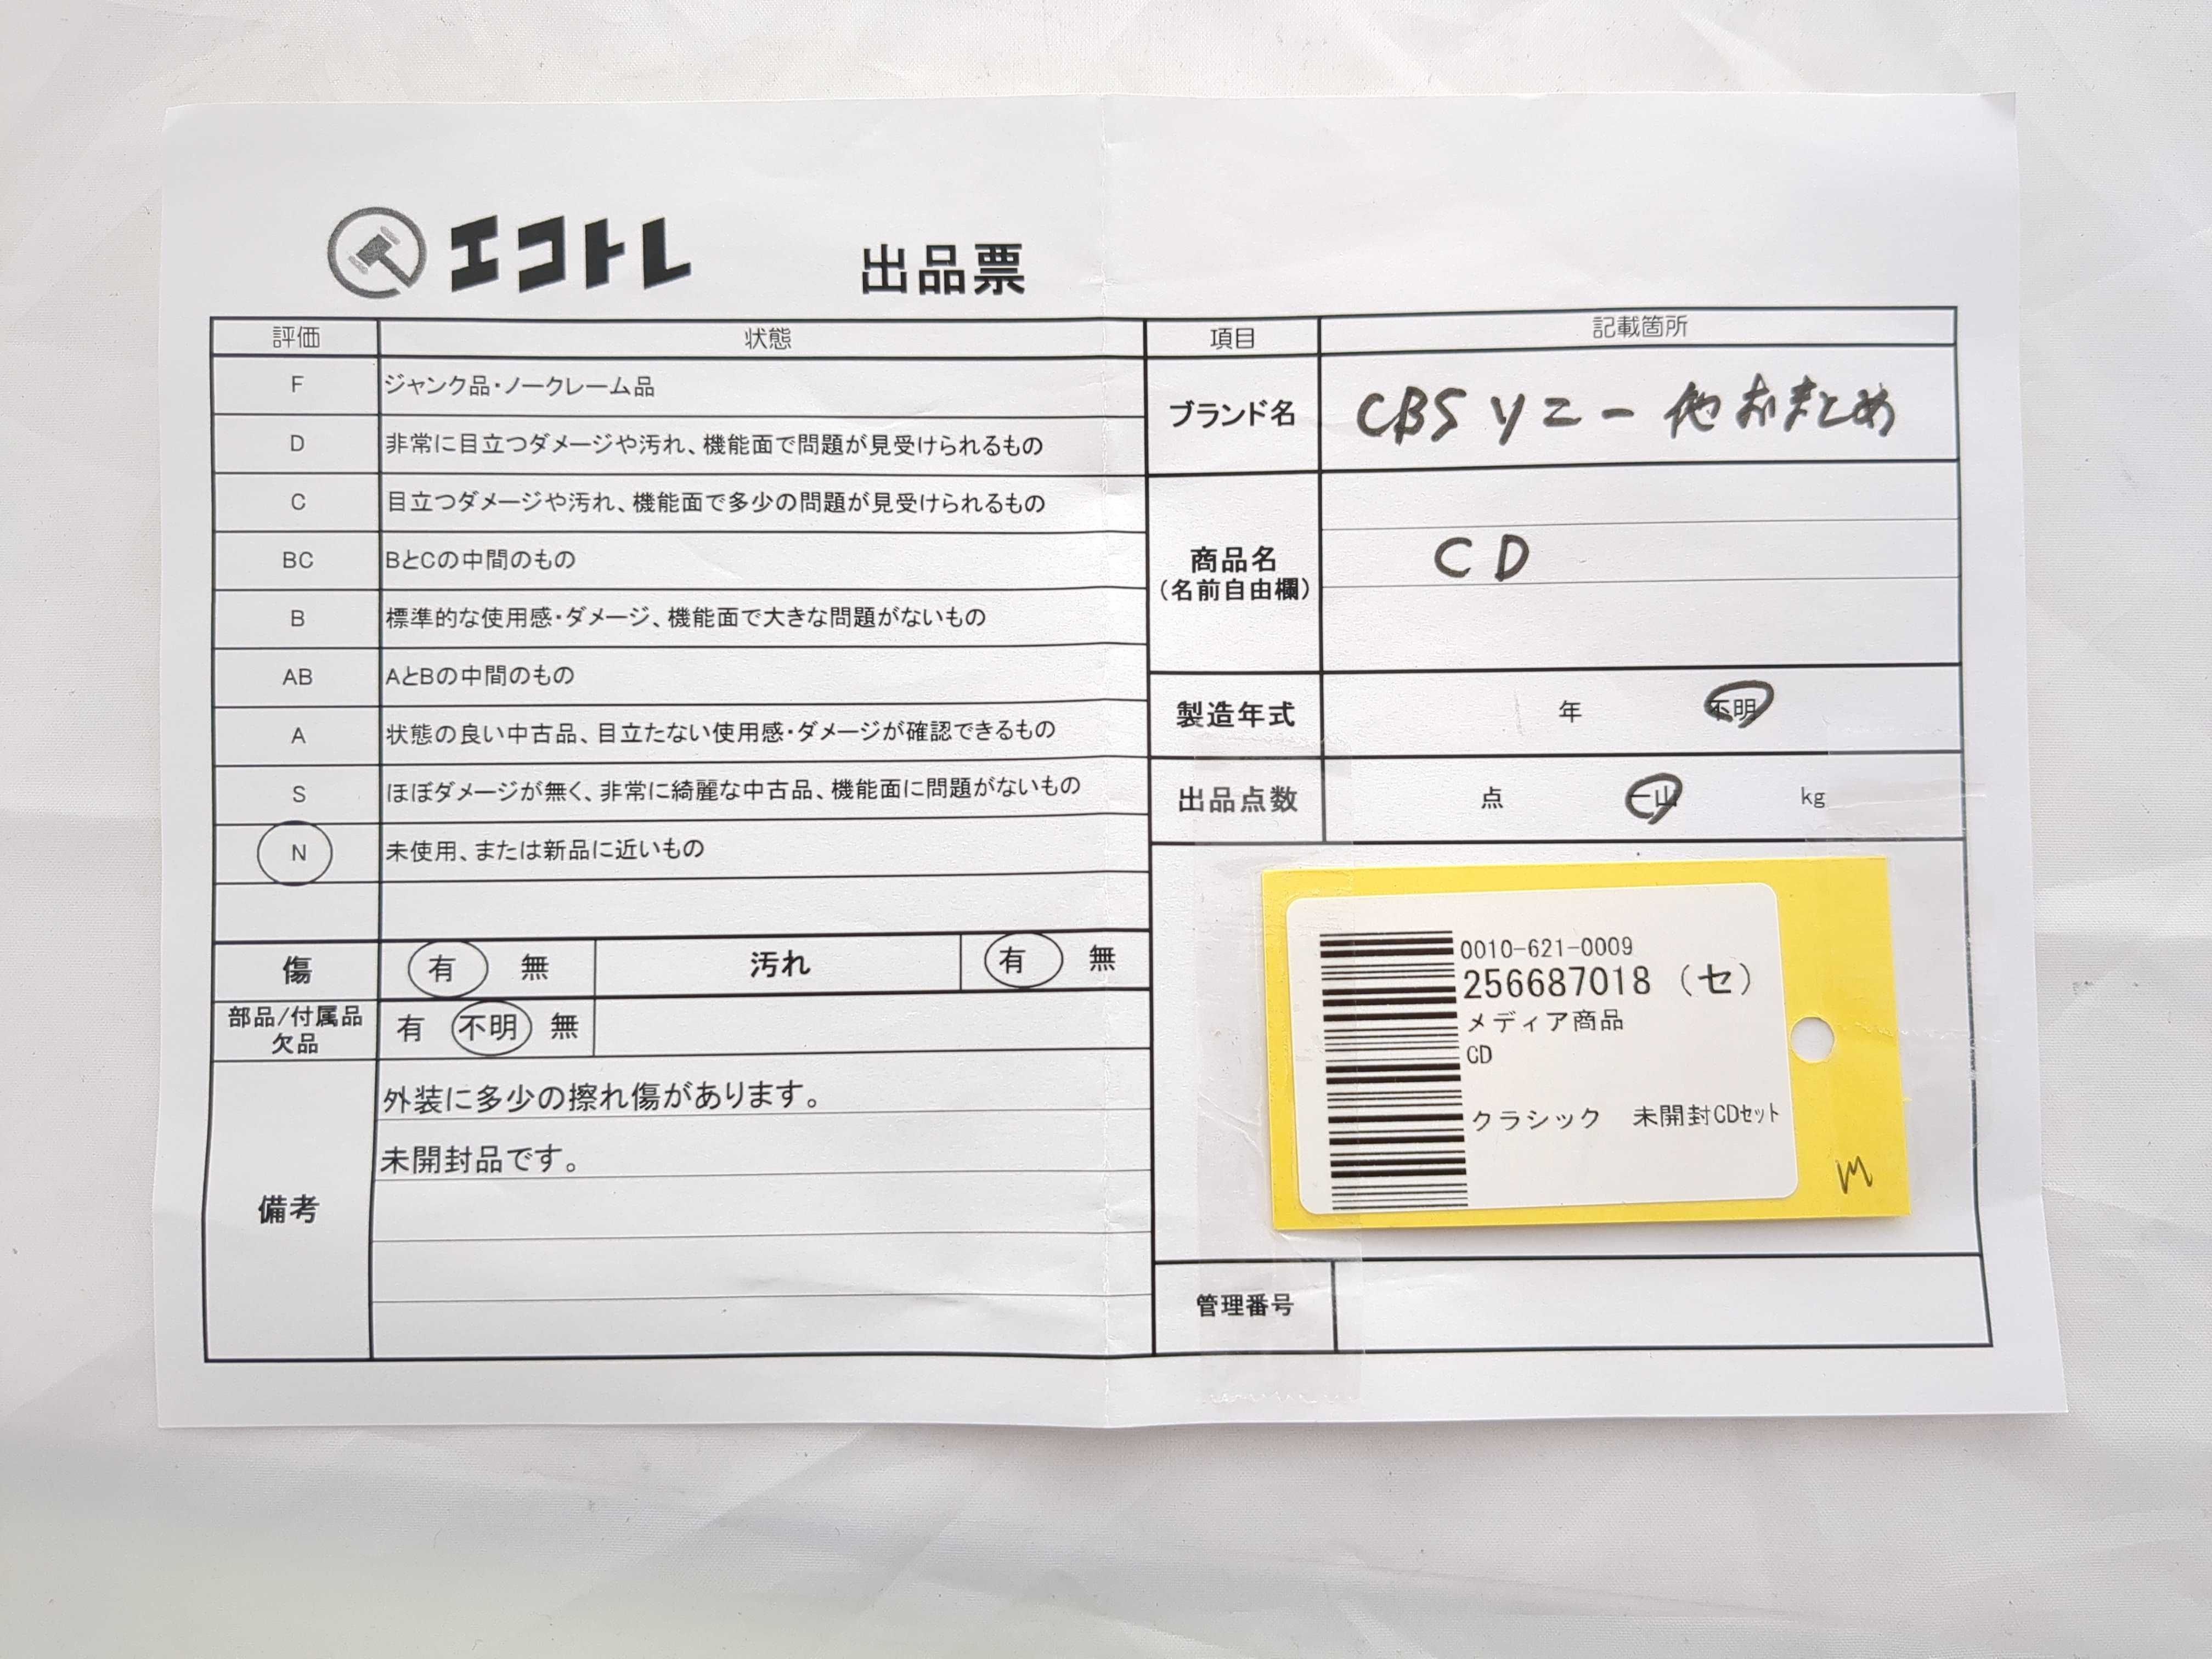 エコトレ 出品票
評価 状態
F ジャンク品・ノークレーム品
D 非常に目立つダメージや汚れ、機能面で問題が見受けられるもの
C 目立つダメージや汚れ、機能面で多少の問題が見受けられるもの
BC BとCの中間のもの
B 標準的な使用感・ダメージ、機能面で大きな問題がないもの
AB AとBの中間のもの
A 状態の良い中古品、目立たない使用感・ダメージが確認できるもの
S ほぼダメージが無く、非常に綺麗な中古品、機能面に問題がないもの
N 未使用、または新品に近いもの
傷 有 無 汚れ 有 無
部品/付属品
欠品
有 不明 無
備考
外装に多少の擦れ傷があります。
未開封品です。
項目 記載箇所
ブランド名 CBSソニー他おまとめ
商品名
(名前自由欄)
CD
製造年式 年 不明
出品点数 点 一山 kg
0010-621-0009
256687018 (セ)
メディア商品
CD
クラシック 未開封CDセット
M
管理番号